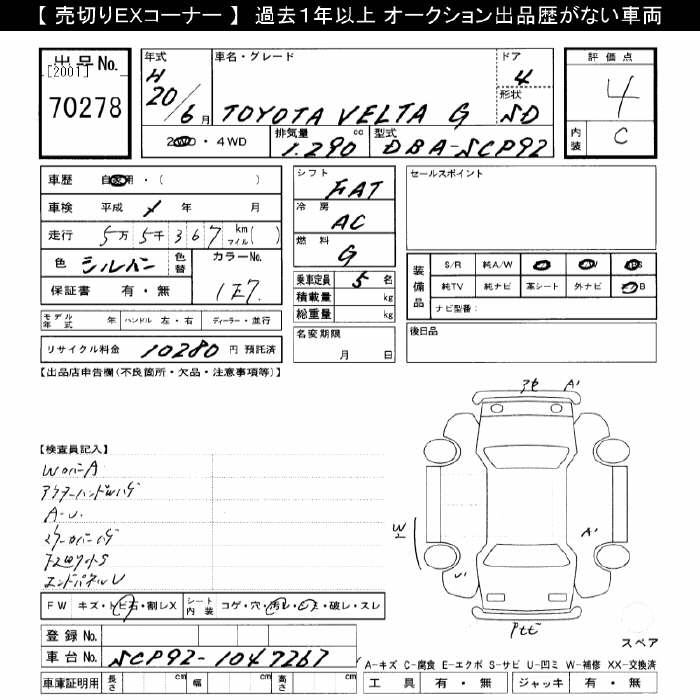 【 売切りEXコーナー 】 過去1年以上 オークション出品歴がない車両
出品No.
[2001]
70278
年式
H
20/6月
車名・グレード
TOYOTA VELTA G
ドア
4
形状
SD
2WD・4WD
排気量
1.290 cc
型式
DBA-SCP92
評価点
4
内装
C
車歴 自家用・( )
車検 平成 年 月
走行 5万 5千 367 km マイル( )
色 シルバー 色替
カラーNo.
1E7.
保証書 有・無
モデル年式 年 ハンドル 左・右 ディーラー・並行
リサイクル料金 10280 円 預託済
シフト
FAT
冷房
AC
燃料
G
乗車定員 5 名
積載量 kg
総重量 kg
名変期限
月 日
セールスポイント
装備品
S/R 純A/W
純TV 純ナビ 革シート 外ナビ
ナビ型番:
後日品
【出品店申告欄(不良箇所・欠品・注意事項等)】
【検査員記入】
A-U.
エンドパネルU
FW キズ・トビ石・割レX
シート内装 コゲ・穴・汚レ・破レ・スレ
登録No.
車台No. SCP92-1047267
車庫証明用 長さ cm 幅 cm 高さ cm
A'
W
A'
U'
スペア
A-キズ C-腐食 E-エクボ S-サビ U-凹ミ W-補修 XX-交換済
工具 有・無 ジャッキ 有・無